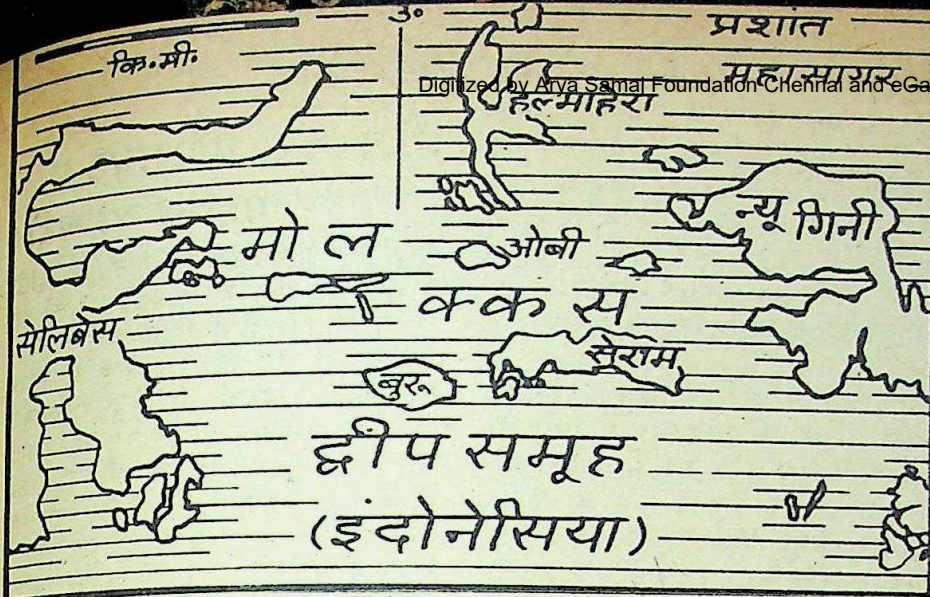 उ॰
प्रशांत
महासागर
कि॰मी॰
Digitized by Arya Samaj Foundation Chennai and eGa
हल्माहेरा
न्यू गिनी
मोल
ओबी
क्कस
सेलिबेस
सेराम
बुरू
द्वीप समूह
(इंदोनेसिया)